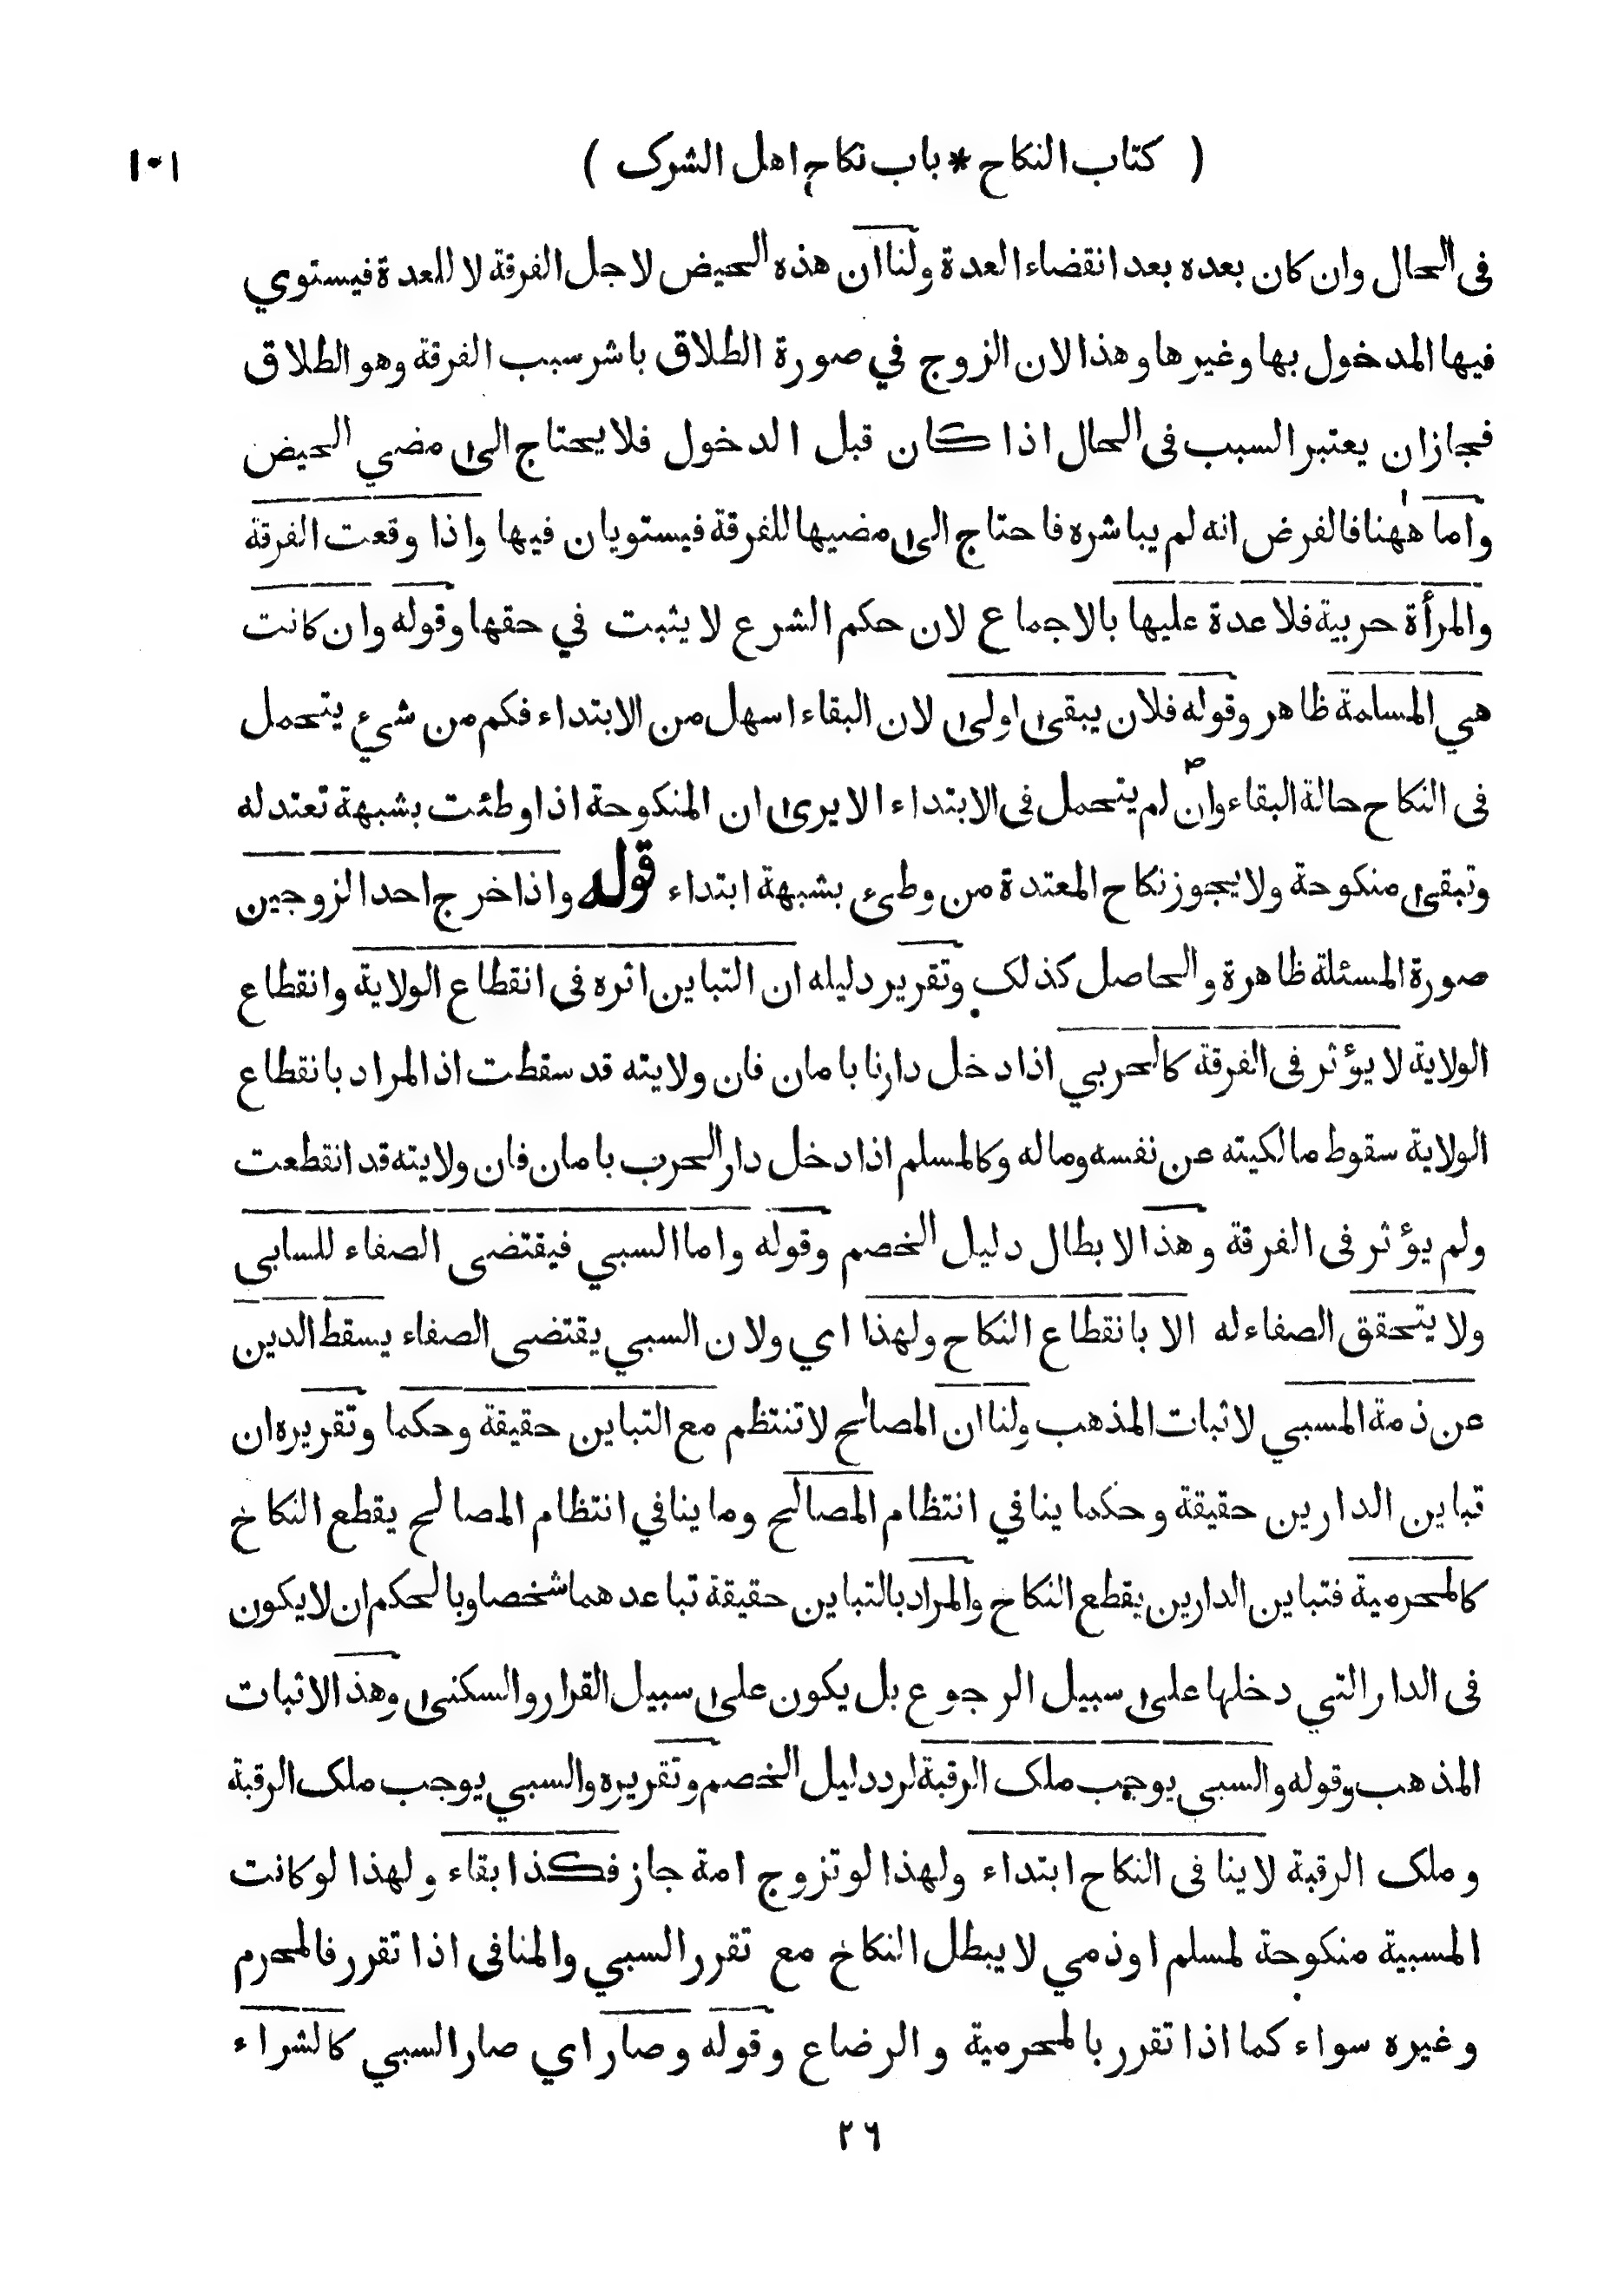 ( كتاب النكاح * باب نكاح اهل الشرك ) ١٠١
فى الحال وان كان بعده بعد انقضاء العدة ولنا ان هذه الحيض لاجل الفرقة لا للعدة فيستوي
فيها المدخول بها وغيرها وهذا لان الزوج في صورة الطلاق باشر سبب الفرقة وهو الطلاق
فجاز ان يعتبر السبب فى الحال اذا كان قبل الدخول فلا يحتاج الى مضي الحيض
واما ههنا فالفرض انه لم يباشره فاحتاج الى مضيها للفرقة فيستويان فيها واذا وقعت الفرقة
والمرأة حربية فلا عدة عليها بالاجماع لان حكم الشرع لا يثبت في حقها وقوله وان كانت
هي المسلمة ظاهر وقوله فلان يبقى اولى لان البقاء اسهل من الابتداء فكم من شيء يتحمل
فى النكاح حالة البقاء وان لم يتحمل فى الابتداء الا يرى ان المنكوحة اذا وطئت بشبهة تعتد له
وتبقى منكوحة ولا يجوز نكاح المعتدة من وطىء بشبهة ابتداء قوله واذا خرج احد الزوجين
صورة المسئلة ظاهرة والحاصل كذلك وتقرير دليله ان التباين اثره فى انقطاع الولاية وانقطاع
الولاية لا يؤثر فى الفرقة كالحربي اذا دخل دارنا بامان فان ولايته قد سقطت اذ المراد بانقطاع
الولاية سقوط مالكيته عن نفسه وماله وكالمسلم اذا دخل دار الحرب بامان فان ولايته قد انقطعت
ولم يؤثر فى الفرقة وهذا لابطال دليل الخصم وقوله واما السبي فيقتضى الصفاء للسابى
ولا يتحقق الصفاء له الا بانقطاع النكاح ولهذا اي ولان السبي يقتضى الصفاء يسقط الدين
عن ذمة المسبي لاثبات المذهب ولنا ان المصالح لا تنتظم مع التباين حقيقة وحكما وتقريره ان
تباين الدارين حقيقة وحكما ينافي انتظام المصالح وما ينافي انتظام المصالح يقطع النكاح
كالمحرمية فتباين الدارين يقطع النكاح والمراد بالتباين حقيقة تباعدهما شخصا وبالحكم ان لا يكون
فى الدار التي دخلها على سبيل الرجوع بل يكون على سبيل القرار والسكنى وهذا لاثبات
المذهب وقوله والسبى يوجب ملك الرقبة لرد دليل الخصم وتقريره والسبي يوجب ملك الرقبة
وملك الرقبة لا ينافى النكاح ابتداء ولهذا لو تزوج امة جاز فكذا بقاء ولهذا لو كانت
المسبية منكوحة لمسلم او ذمي لا يبطل النكاح مع تقرر السبي والمنافى اذا تقرر فالمحرم
وغيره سواء كما اذا تقرر بالمحرمية والرضاع وقوله وصار اي صار السبي كالشراء
٢٦